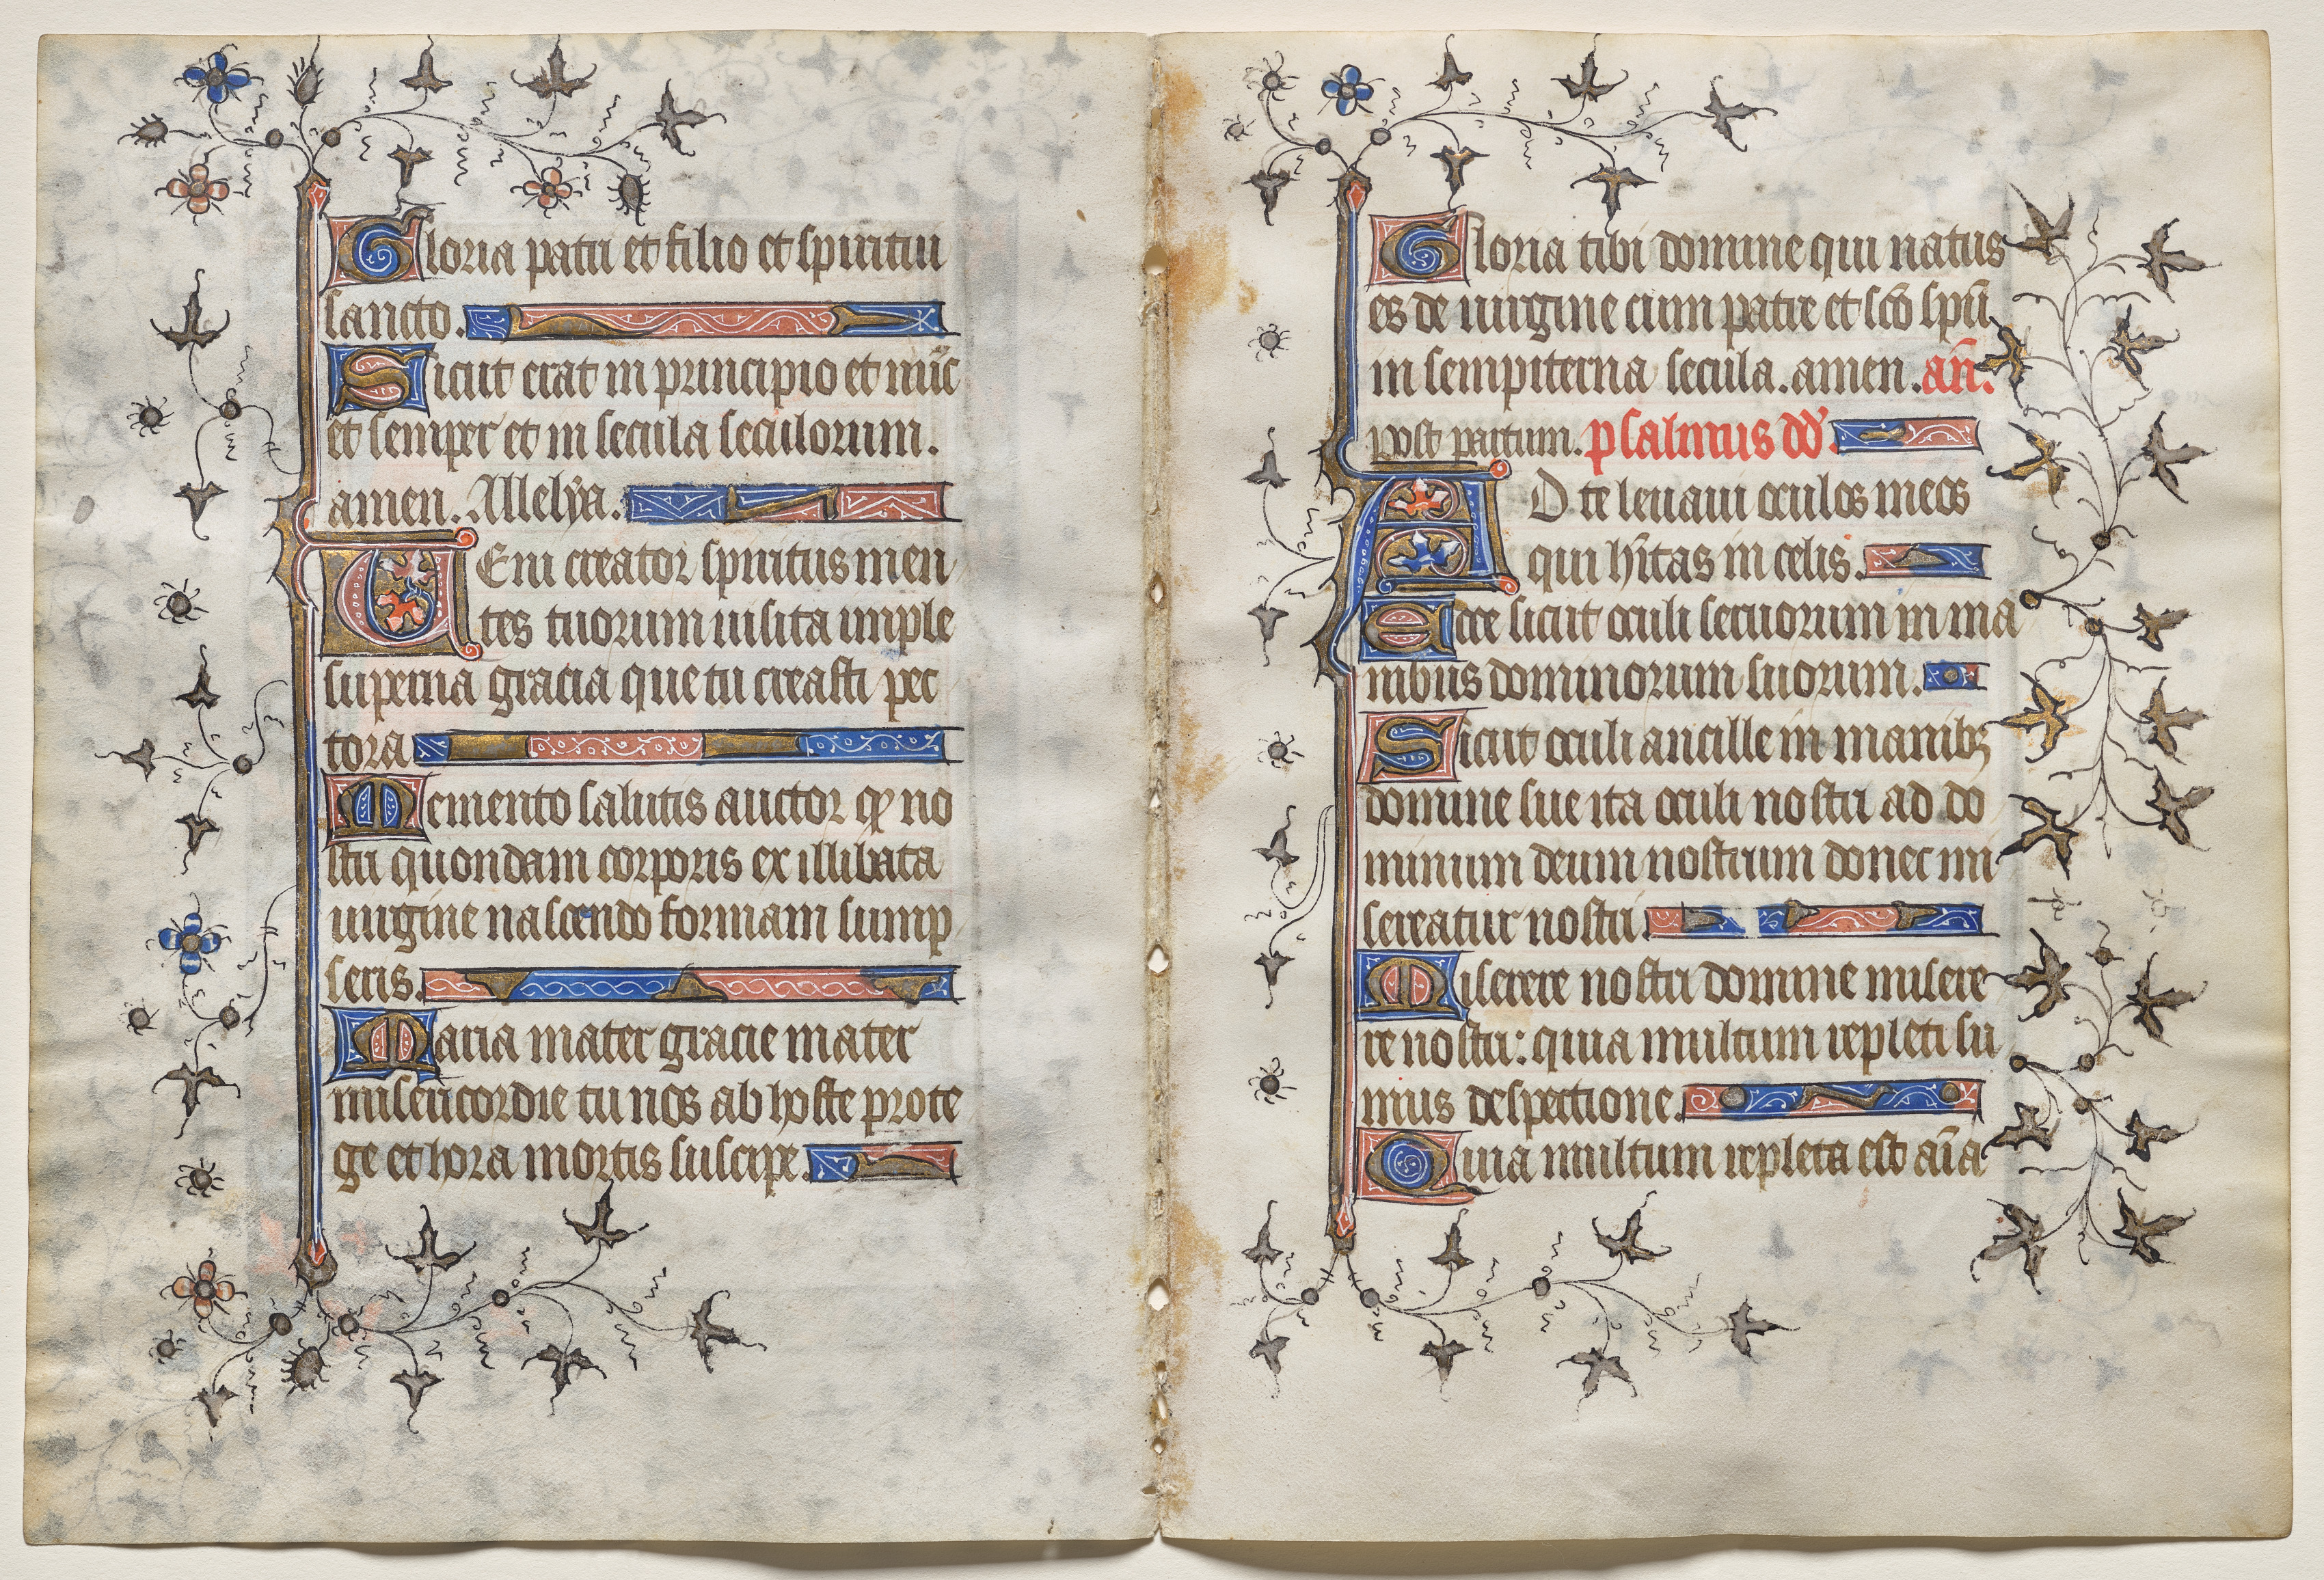 Gloria patri et filio et spiritui
sancto.
Sicut erat in principio et nu̅c
et semper et in secula seculorum.
amen. Allelya.
UEni creator spiritus men
tes tuorum uisita imple
superna gracia que tu creasti pec
tora
Memento salutis auctor ꝙ no
stri quondam corporis ex illibata
uirgine nascendo formam sump
seris.
Maria mater gracie mater
misericordie tu nos ab hoste prote
ge et hora mortis suscipe.
Gloria tibi domine qui natus
es de uirgine cum patre et sc̅o spu̅
in sempiterna secula. amen. an̅.
post partum. psalmus dd̅.
AD te leuaui oculos meos
qui h̅itas in celis.
Ecce sicut oculi seruorum in ma
nibus dominorum suorum.
Sicut oculi ancille in manibꝫ
domine sue ita oculi nostri ad do
minum deum nostrum donec mi
sereatur nostri
Miserere nostri domine misere
re nostri: quia multum repleti su
mus despectione.
Quia multum repleta est ai̅a